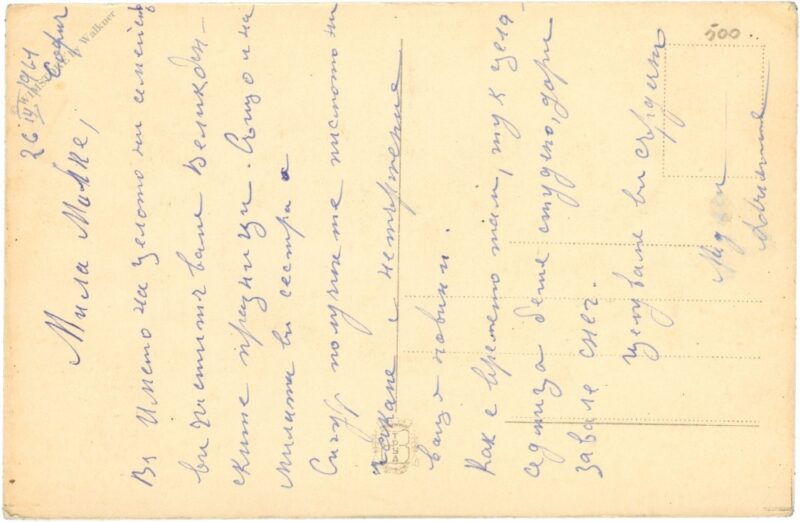 26 IV 1961
София
Мила Милке,
Въ името на целото ни семейство
ви честитя вам Великден-
ските празници. Също и на
милата ви сестра.
Сигур получихте писмото ни
чакаме с нетърпение
ваши новини.
Как е времето там, тук цела
седмица беше студено, дори
заваля снег.
Целуваме ви сърдечно
500
Walkner